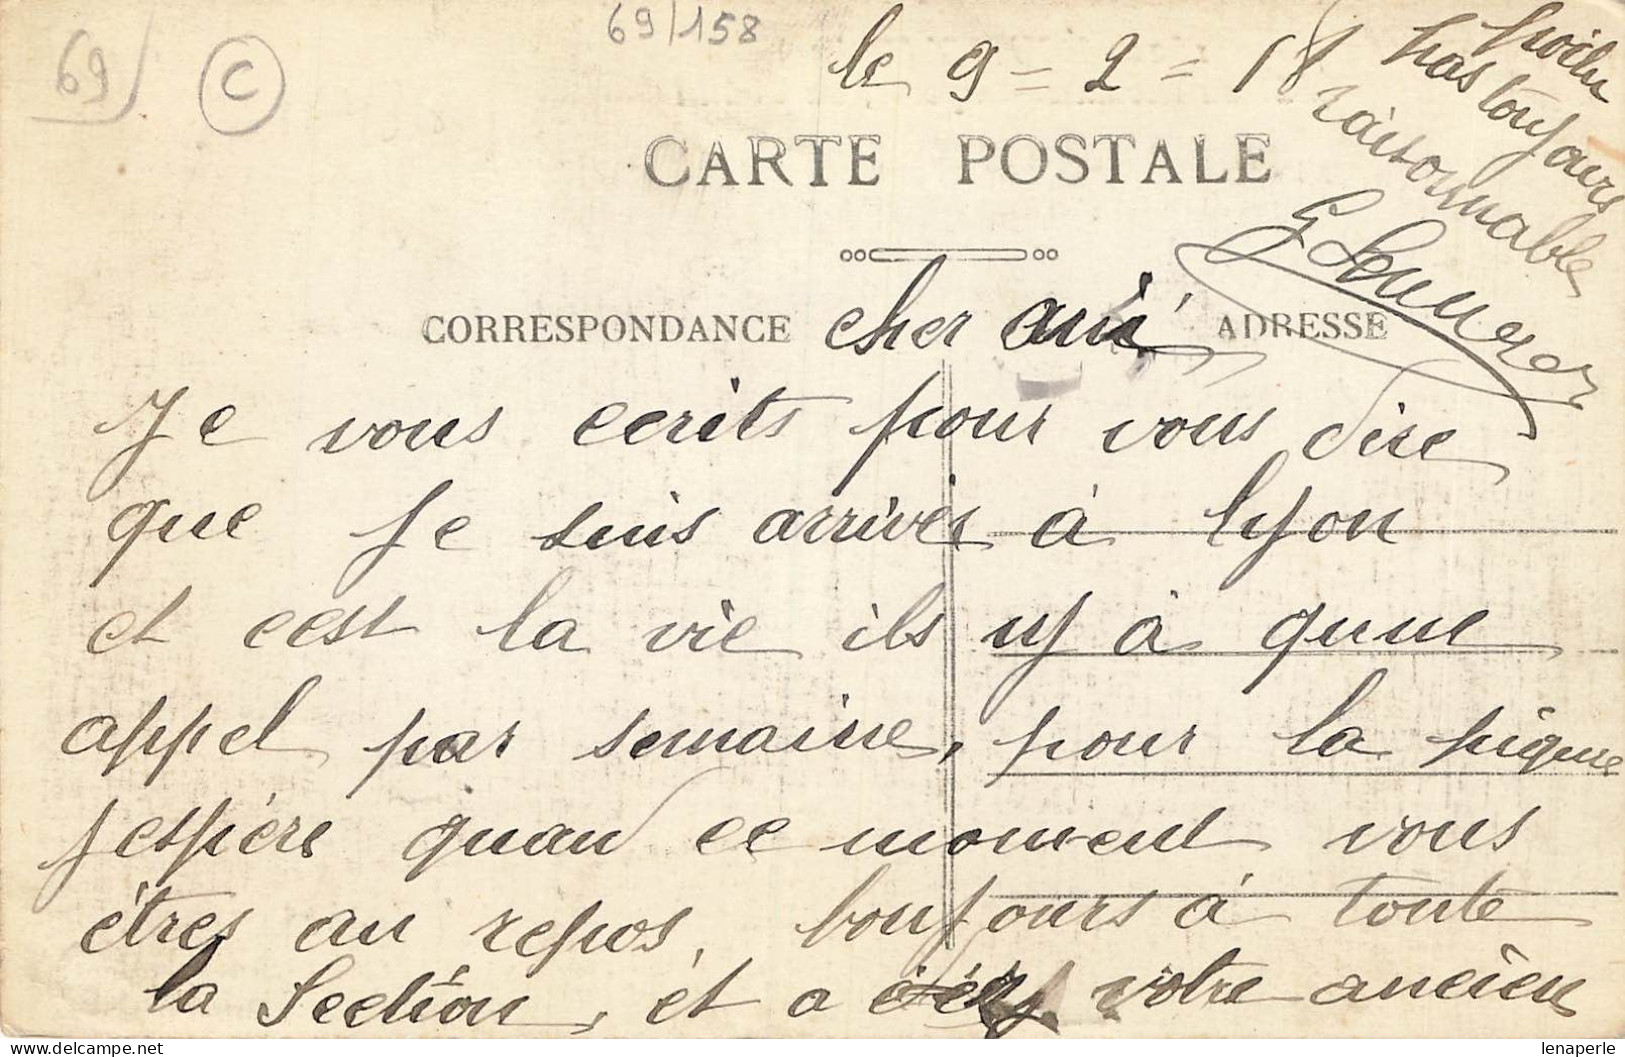 69/158
69
C
le 9=2=18
CARTE POSTALE
CORRESPONDANCE
ADRESSE
cher ami
Je vous ecrits pour vous dire
que je suis arrivés à lyon
et cest la vie ils ny à quune
appel par semaine, pour la piqure
jespère quan ce moment vous
êtres au repos, boujours à toute
la Section, et a votre ancien
poilu
pas toujours
raisonnable
lenaperle